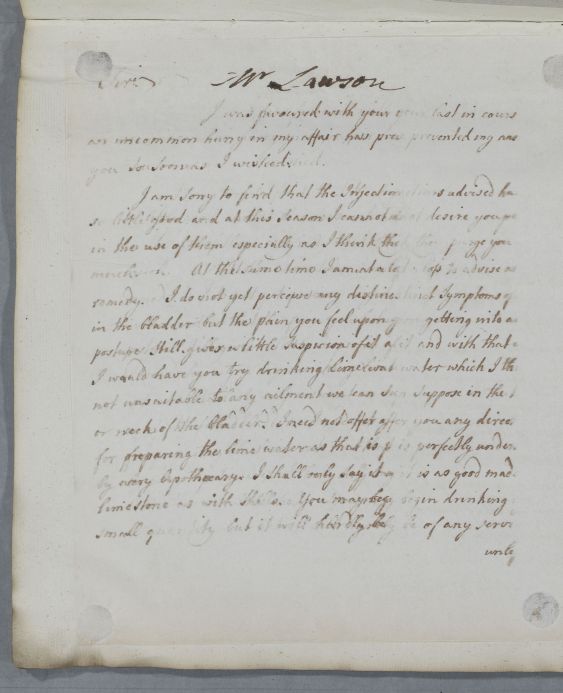 Sir Mr Lawson
I was favoured with your last in cours
an uncommon hurry in my affair has prevented my ans
you so soon as I wished
I am sory to find that the Injections advised ha
so little good and at this Season I cannot desire you
in the use of them especially as I think they purge you
At the same time I am at a loss to advise
remedy. I do not yet perceive any distinct Symptoms of
in the bladder but the pain you feel upon getting into a
posture still gives a little suspicion of it and with that
I would have you try drinking Lime water which I th
not unsuitable to any ailment we can suppose in the
or neck of the bladder. I need not offer you any direc
for preparing the lime water as that is perfectly under
by every Apothecary I shall only say it is as good made
lime stone as with shells. You may begin drinking
small quantity but it will hardly be of any servi
unle